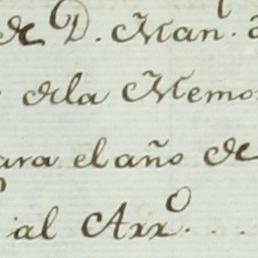 de D. Man.
dela Memo
ara el año de
al Arx.º...